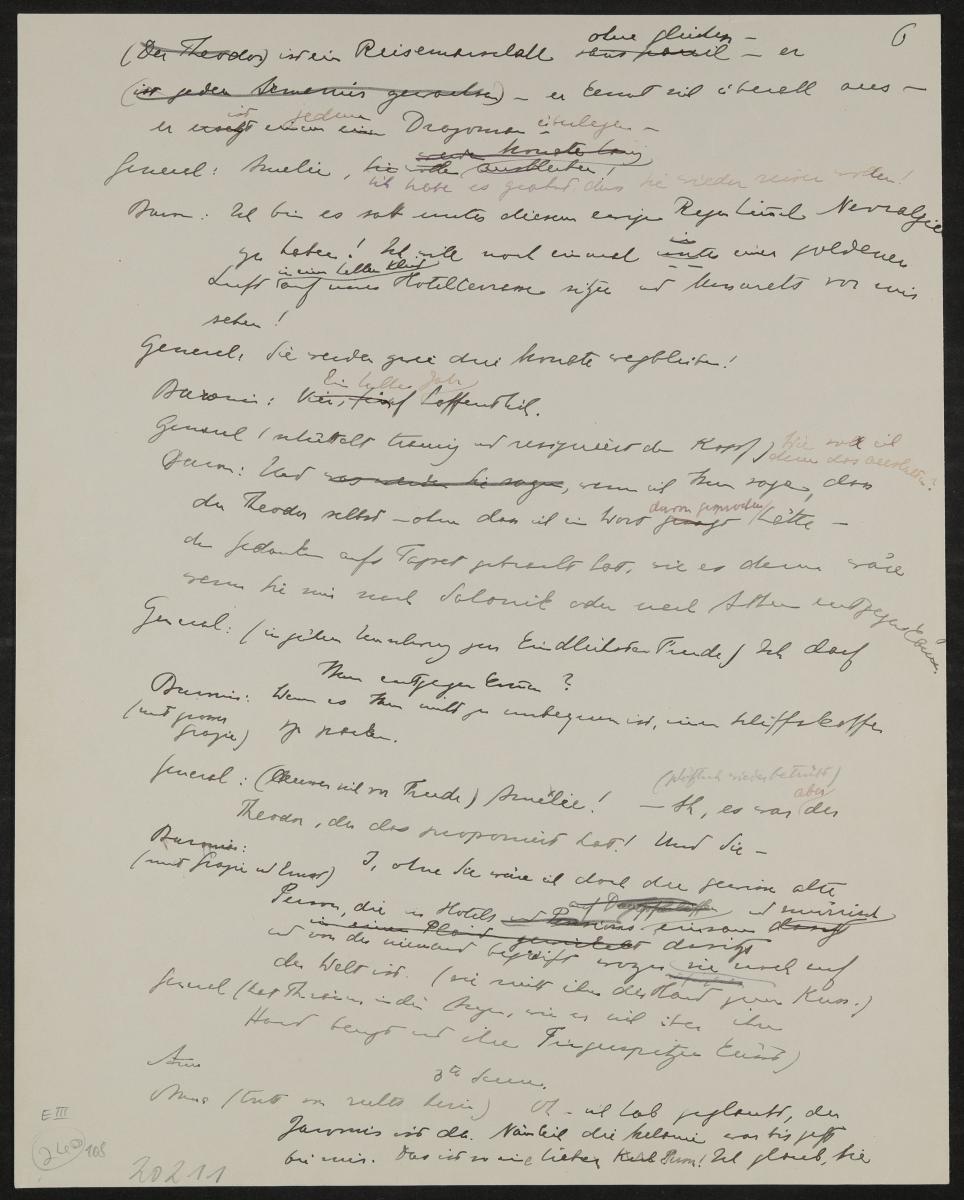 6
ohne gleichen –
(Der Theodor) ist ein Reisemarschall sans pareil – er
(ist jeden gewachsen) – er kennt sich überall aus –
ist jedem
er einen Dragoman überlegen –
General: Amelie, Sie ausbleiben!
ich habe es geahnt, dass Sie wieder reisen wollen!
Baron: Ich bin es satt unter diesem ewigen Neuralgie
zu haben! Ich will noch einmal in einer goldenen
in einem hellen Kleid
Luft auf einer Hotelterrasse sitzen und Minarets vor mir
sehen!
General: Sie werden zwei drei Monate wegbleiben!
Ein halbes Jahr
Baronin: Vier, fünf hoffentlich.
General (schüttelt traurig und resigniert den Kopf) Wie soll ich
denn das aushalten?
Baron: Und was werden Sie sagen, wenn ich Ihnen sage, dass
davon gesprochen
der Theodor selbst – ohne dass ich ein Wort gesagt hätte –
den Gedanken aufs Tapet gebracht hat, wie es denn wäre
wenn Sie mir nach Salonik oder nach Athen entgegenkämen.
General: (in jäher Freude) Ich darf
Ihnen entgegen kommen?
Baronin: Wenn es Ihnen nicht zu unbequem ist, einen Schiffskoffer
(mit grosser
Grazie) zu packen.
General: (ausser sich vor Freude) Amélie! – Ah, es war aber der
(plötzlich wieder betrübt)
Theodor, der das proponiert hat! Und Sie –
Baronin:
(mit Grazie und Ernst) Ja, ohne Sie wäre ich doch eine gewisse alte
auf Dampfschiffen
Person, die in Hotels und Pensions einsam und mürrisch
in einen Plaid gewickelt dasitzt
und von der niemand begreift wozu sie noch auf
der Welt ist. (sie reicht ihm die Hand zum Kuss.)
General (hat Thränen in den Augen, wie er sich über ihre
Hand beugt und ihre Fingerspitzen küsst)
3te Scene.
Anna (tritt von rechts herein) Oh – ich hab geglaubt, der
Jaromir ist da. Nämlich die Melanie war bis jetzt
bei mir. Das ist so eine liebe Person! Ich glaub, sie
E III
240
108
20211